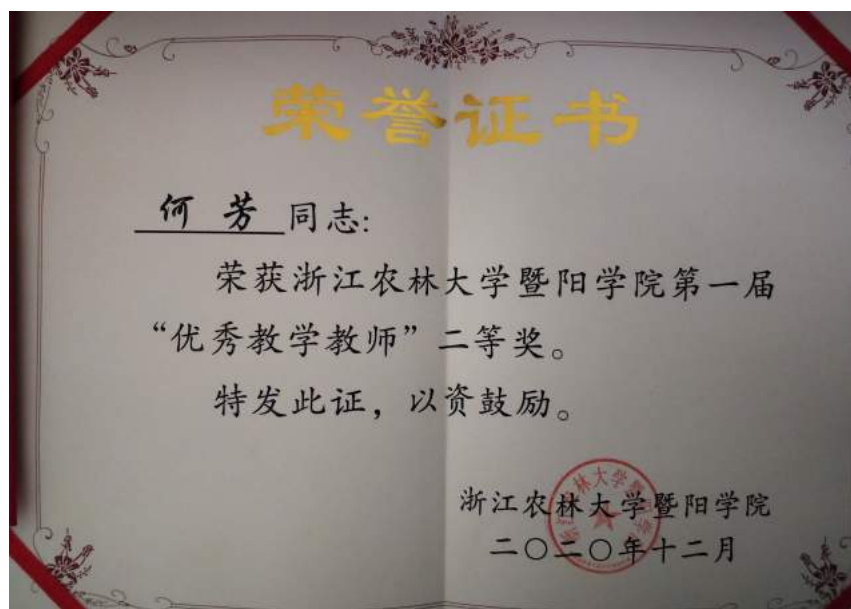 荣誉证书
何芳同志:
荣获浙江农林大学暨阳学院第一届
“优秀教学教师”二等奖。
特发此证，以资鼓励。
浙江农林大学暨阳学院
二〇二〇年十二月